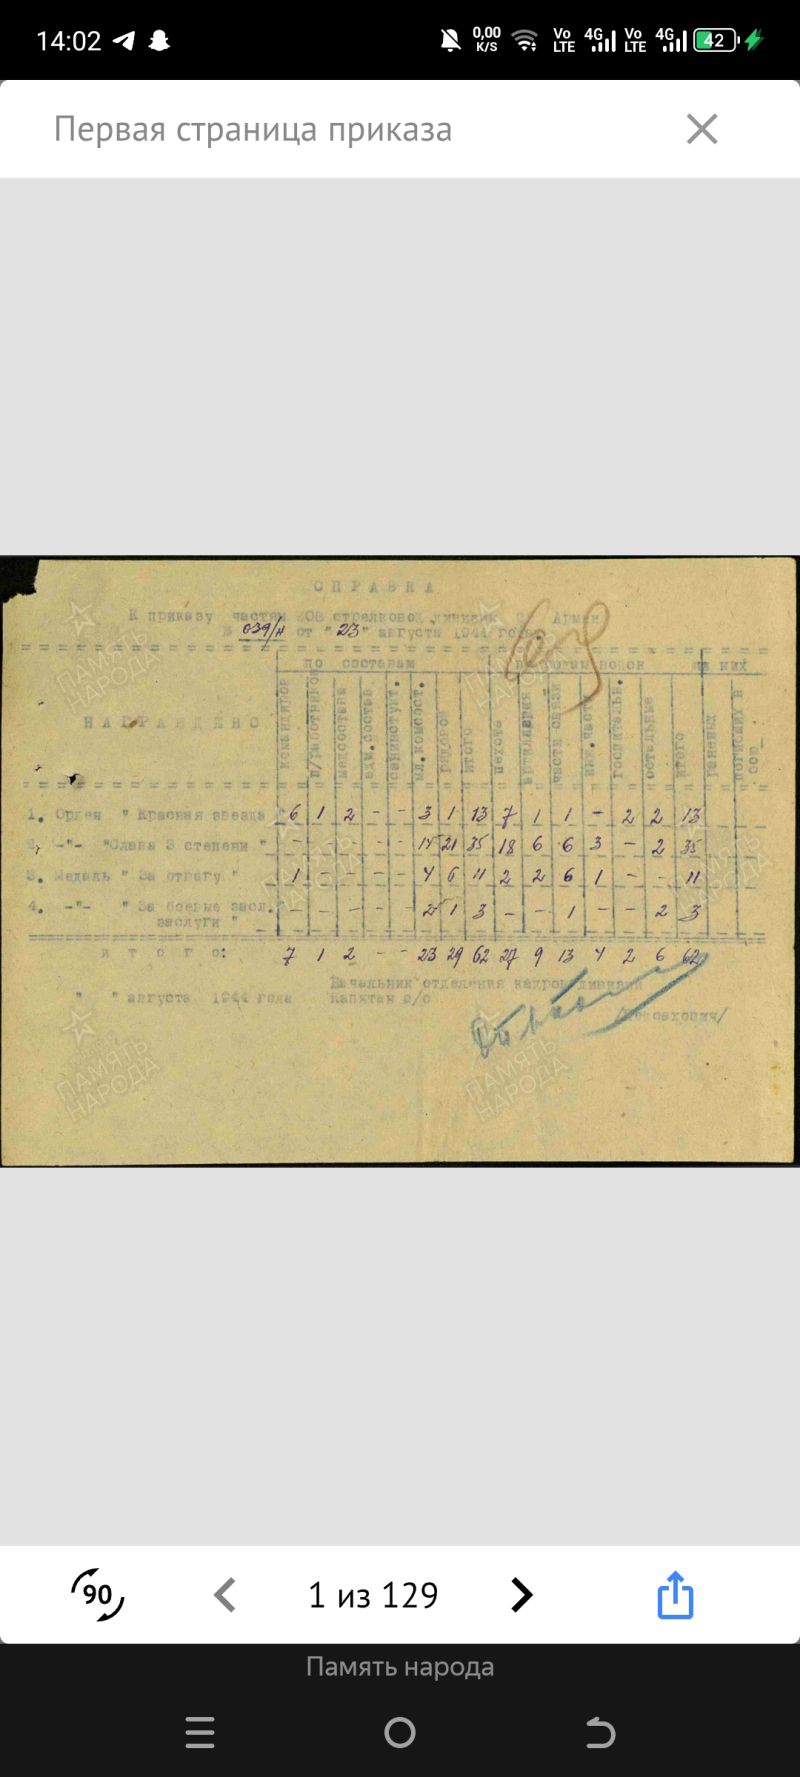 14:02
0,00 K/S Vo LTE 4G Vo LTE 4G 42
Первая страница приказа
СПРАВКА
К приказу частям стрелковой дивизии Армии
№ 039/н от "23" августа 1944 года.
по составам по родам войск из них
НАГРАЖДЕНО командиров п/работников медсостава адм.состав мл.комсост. рядовой итого пехота артиллерия части связи инж.части остальные итого раненых
1. Орден " Красная звезда " 6 1 2 - - 3 1 13 7 1 1 - 2 2 13
2. -"- "Слава 3 степени " - - - - - 14 21 35 18 6 6 3 - 2 35
3. Медаль " За отвагу " 1 - - - - 4 6 11 2 2 6 1 - - 11
4. -"- " За боевые засл. - - - - - 2 1 3 - - 1 - - 2 3
заслуги "
И т о г о: 7 1 2 - - 23 29 62 27 9 13 4 2 6 62
Начальник отделения кадров дивизии
" " августа 1944 года Капитан а/с
ПАМЯТЬ НАРОДА
ПАМЯТЬ НАРОДА
ПАМЯТЬ НАРОДА
ПАМЯТЬ НАРОДА
90 1 из 129
Память народа